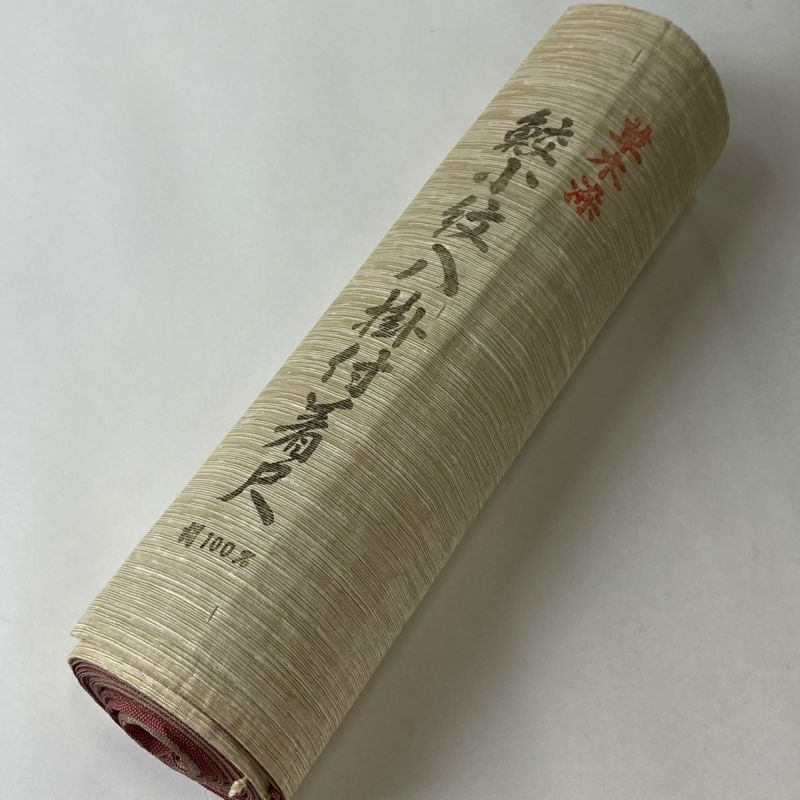 草木染
鮫小紋八掛付着尺
絹100%